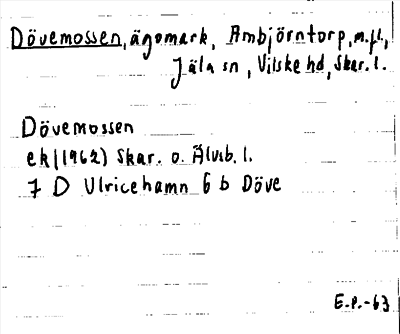 Dövemossen, ägomark, Ambjörntorp, m.fl.,
Jäla sn, Vilske hd, Skar. l.
Dövemossen
ek (1962) Skar. o. Älvsb. l.
7 D Ulricehamn 6 b Döve
E.P.-63